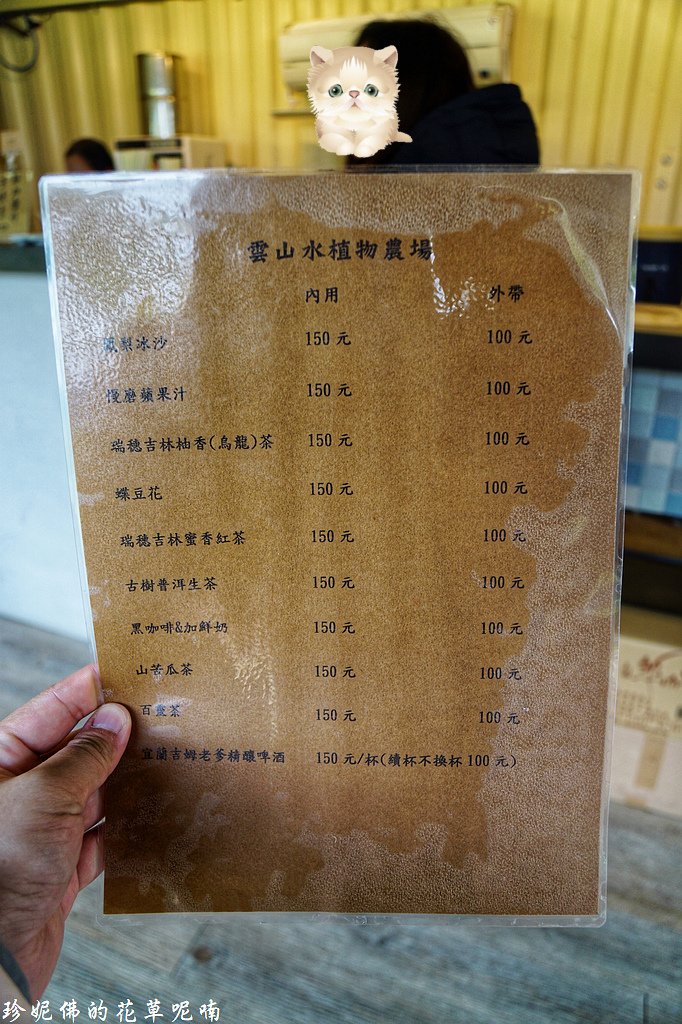 雲山水植物農場
內用 外帶
鳳梨冰沙 150 元 100 元
慢磨蘋果汁 150 元 100 元
瑞穗吉林柚香(烏龍)茶 150 元 100 元
蝶豆花 150 元 100 元
瑞穗吉林蜜香紅茶 150 元 100 元
古樹普洱生茶 150 元 100 元
黑咖啡&加鮮奶 150 元 100 元
山苦瓜茶 150 元 100 元
百靈茶 150 元 100 元
宜蘭吉姆老爹精釀啤酒 150 元/杯(續杯不換杯 100 元)
珍妮佛的花草呢喃